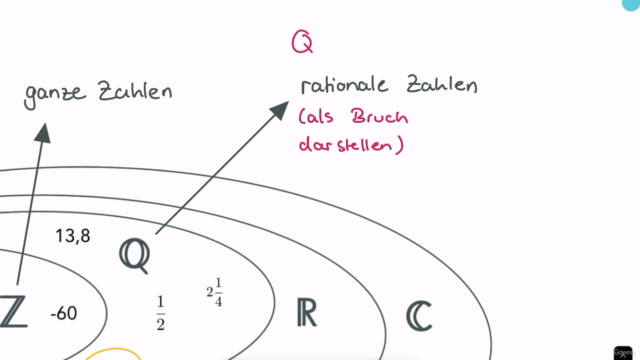 Q
ganze Zahlen
rationale Zahlen
(als Bruch
darstellen)
13,8
ℚ
2 1/4
ℤ
-60
1/2
ℝ
ℂ